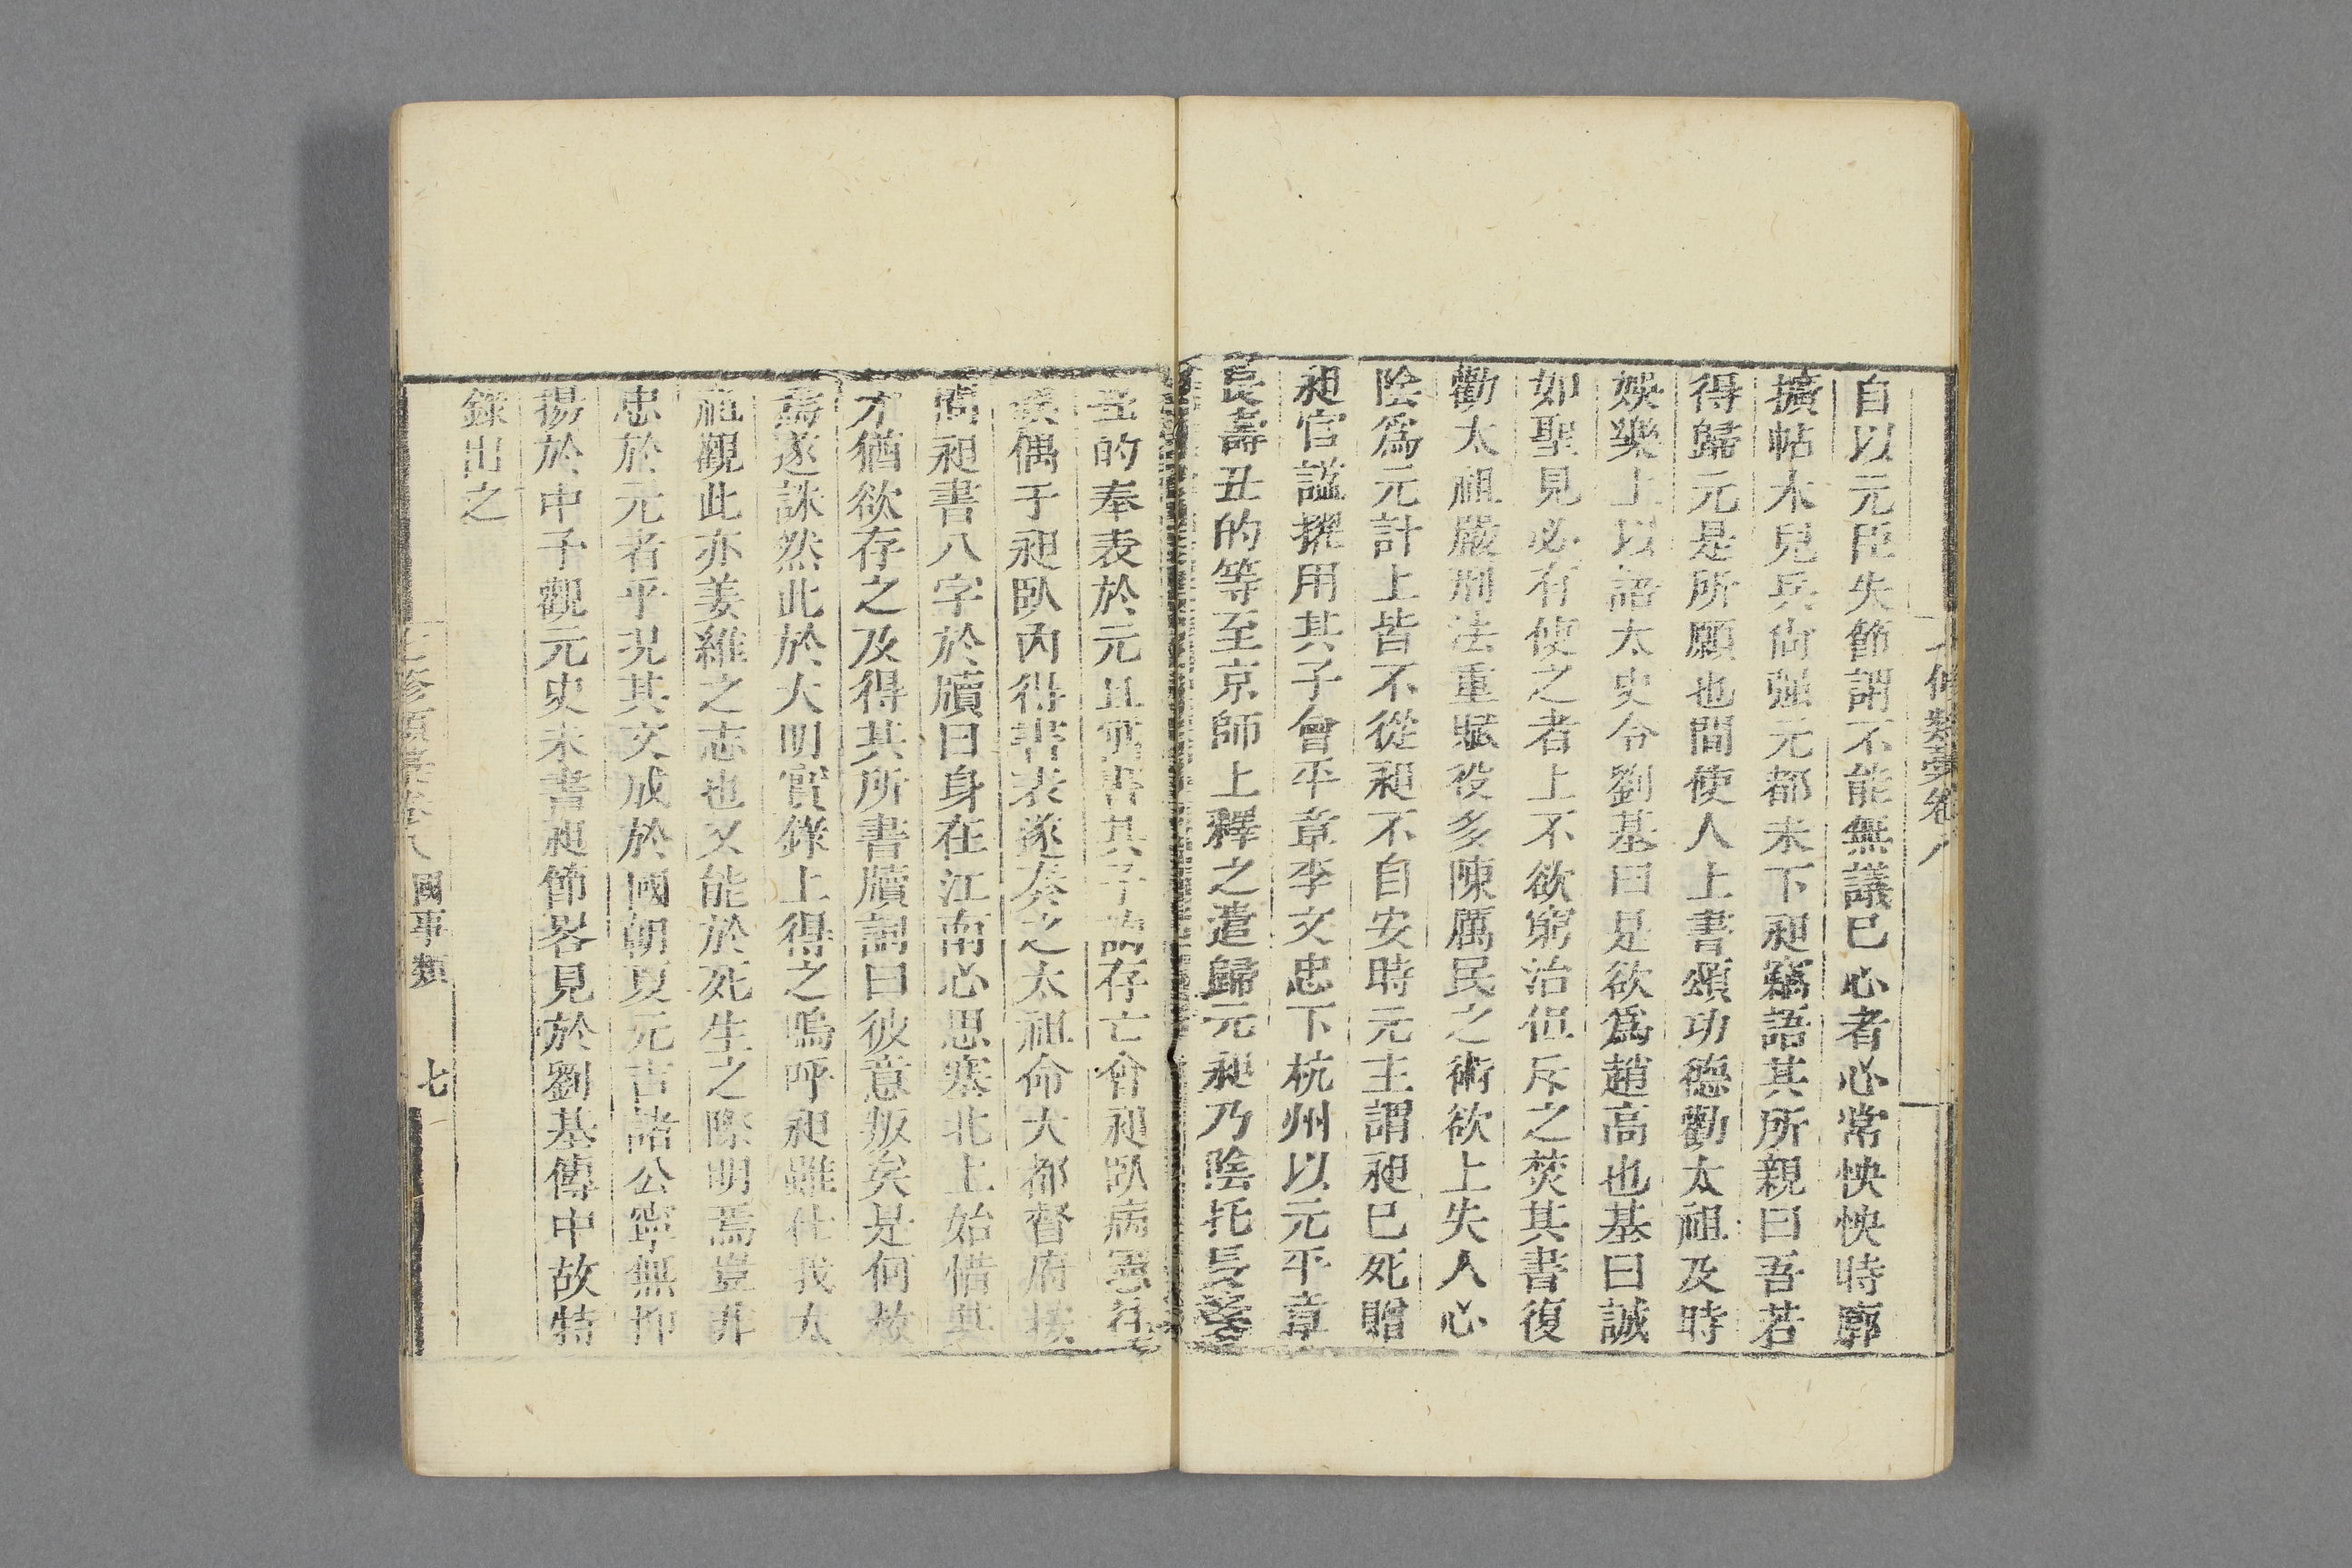 七修類稾卷八
自以元臣失節謂不能無議巳心者必常怏怏時廓
擴帖木兒兵尚強元都未下昶竊語其所親曰吾若
得歸元是所願也間使人上書頌功德勸太祖及時
娛樂上以語太史令劉基曰是欲爲趙高也基曰誠
如聖見必有使之者上不欲窮治但斥之焚其書復
勸太祖嚴刑法重賦役多陳厲民之術欲上失人心
陰爲元計上皆不從昶不自安時元主謂昶巳死贈
昶官諡擢用其子會平章李文忠下杭州以元平章
長壽丑的等至京師上釋之遣歸元昶乃陰托長壽
丑的奉表於元且寓書其子詢存亡會昶臥病憲往
候偶于昶臥內得書表遂奏之太祖命大都督府按
問昶書八字於牘曰身在江南心思塞北上始惜其
才猶欲存之及得其所書牘詞曰彼意叛矣是何赦
焉遂誅然此於大明實錄上得之嗚呼昶雖仕我太
祖觀此亦姜維之志也又能於死生之際明焉豈非
忠於元者乎况其文成於國朝夏元吉諸公寧無抑
揚於中予觀元史未書昶節畧見於劉基傳中故特
錄出之
七修類稾卷八 國事類 七